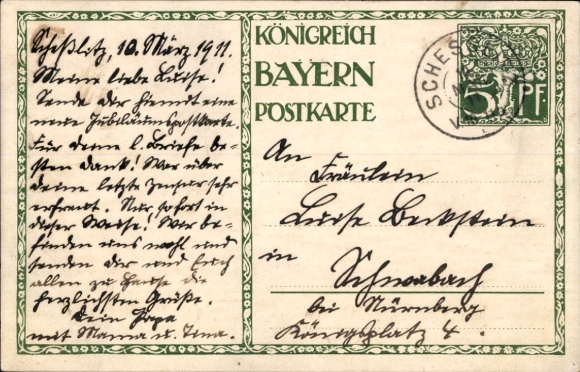 Scheßlitz, 10. März 1911.
Meine liebe Luise!
Sende dir hiemit eine
neue Jubiläumspostkarte.
Für deine l. Briefe be-
sten Dank! War über
deine letzte Zensur sehr
erfreut. Nur so fort in
dieser Weise! Wir be-
finden uns wohl und
senden dir und Euch
allen zu Hause die
herzlichsten Grüße.
Dein Papa
mit Mama u. Tina.
KÖNIGREICH
BAYERN
POSTKARTE
SCHES
5 PF.
An
Fräulein
Luise Beckstein
in
Schwabach
bei Nürnberg
Königsplatz 4.